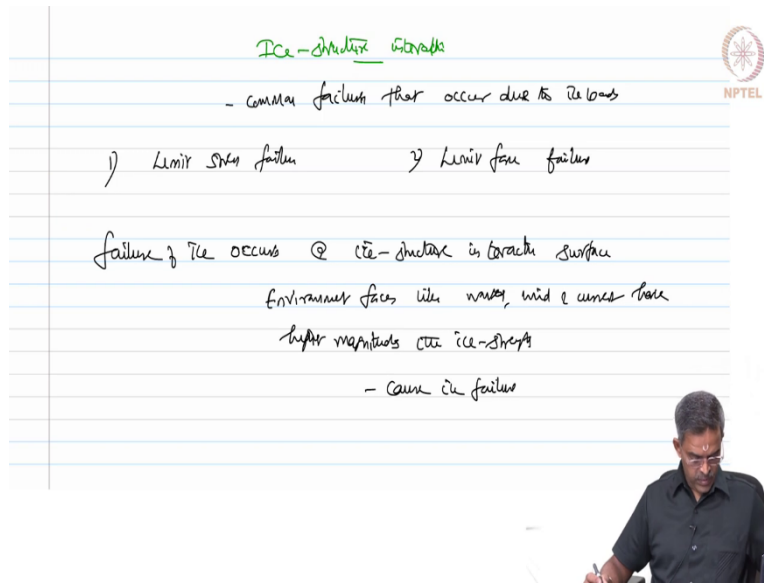 Ice-structure interaction
NPTEL
- common failures that occur due to ice loads
1) Limit stress failure 2) Limit force failure
Failure of ice occurs @ ice-structure interaction surface
Environment forces like waves, wind & current have
higher magnitudes than ice-strength
- cause ice failure